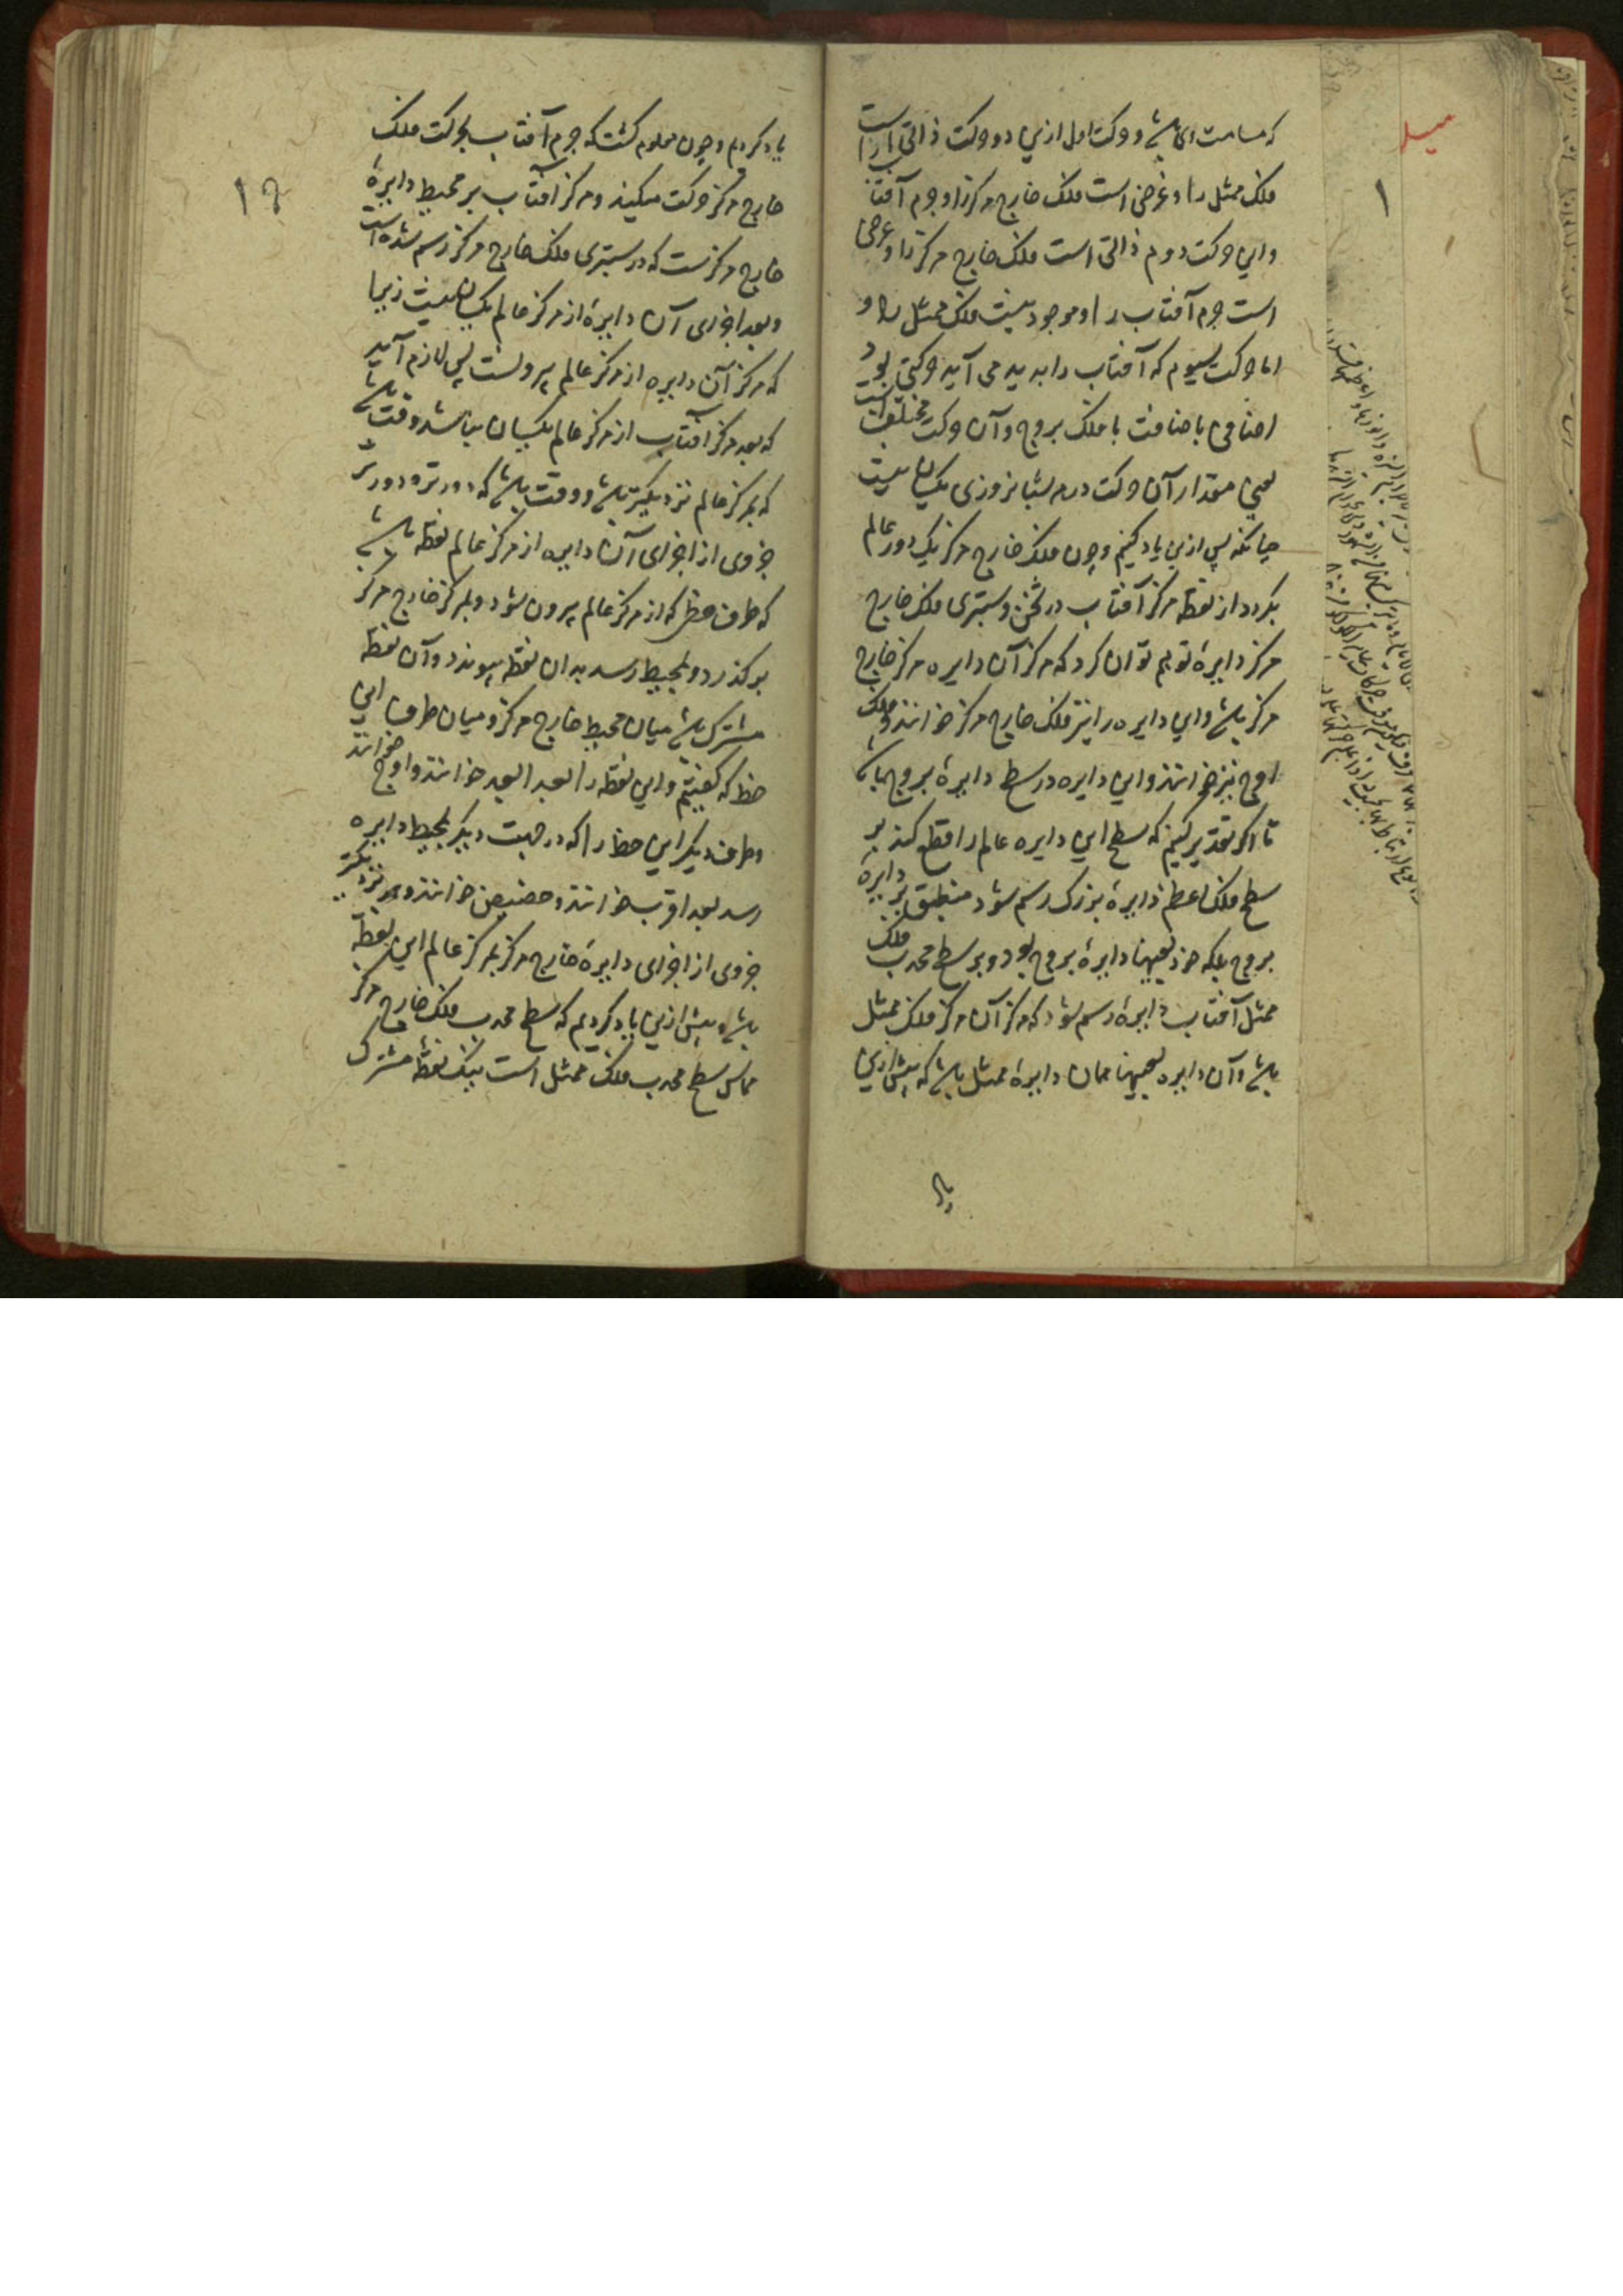 که مسامت ای باشد و حرکت اول ازین دو حرکت ذاتی است
فلک ممثل را و عرضی است فلک خارج مرکز را و جرم آفتاب را
و این حرکت دوم ذاتی است فلک خارج مرکز را و عرضی
است جرم آفتاب را و موجود نیست فلک ممثل را و
اما حرکت سیوم که آفتاب را بدید می آید حرکتی بود
اضافی باضافت با فلک بروج و آن حرکت مختلف است
یعنی مقدار آن حرکت در هر شبانروزی یکسان نیست
چنانکه پس ازین یاد کنیم و چون فلک خارج مرکز یک دور عالم
بگردد از نقطه مرکز آفتاب در ثخن و ستبری فلک خارج
مرکز دایرۀ توهم توان کرد که مرکز آن دایره مرکز خارج
مرکز باشد و این دایره را نیز فلک خارج مرکز خوانند و فلک
اوج نیز خوانند و این دایره در سطح دایرۀ بروج باشد
تا اگر تقدیر کنیم که سطح این دایره عالم را قطع کند بر
سطح فلک اعظم دایرۀ بزرگ رسم شود منطبق بر دایرۀ
بروج بلکه خود بعینها دایرۀ بروج بود و بر سطح محدب فلک
ممثل آفتاب دایرۀ رسم شود که مرکز آن مرکز فلک ممثل
باشد و آن دایره بعینها همان دایرۀ ممثل باشد که پیش ازین
یاد کردیم و چون معلوم گشت که جرم آفتاب بحرکت فلک
خارج مرکز حرکت میکند و مرکز آفتاب بر محیط دایرۀ
خارج مرکزست که در ستبری فلک خارج مرکز رسم شده است
و بعد اجزای آن دایرۀ از مرکز عالم یکسان نیست زیرا
که مرکز آن دایره از مرکز عالم بیرونست پس لازم آمد
که بعد مرکز آفتاب از مرکز عالم یکسان نباشد وقت باشد
که بمرکز عالم نزدیکتر باشد و وقت باشد که دورتر و دورتر
جزوی از اجزای آن دایره از مرکز عالم نقطه باشد
که طرف خطی که از مرکز عالم بیرون شود و بمرکز خارج مرکز
بر گذرد و بمحیط رسد بدان نقطه پیوندد و آن نقطه
مشترک باشد میان محیط خارج مرکز و میان طرف این
خط که گفتیم و این نقطه را بعد ابعد خوانند و اوج خوانند
و طرف دیگر این خط را که در جهت دیگر بمحیط دایره
رسد بعد اقرب خوانند و حضیض خوانند و نزدیکتر
جزوی از اجزای دایرۀ خارج مرکز بمرکز عالم این نقطه
باشد و پیش ازین یاد کردیم که سطح محدب فلک خارج مرکز
مماس سطح محدب فلک ممثل است بیک نقطۀ مشترک